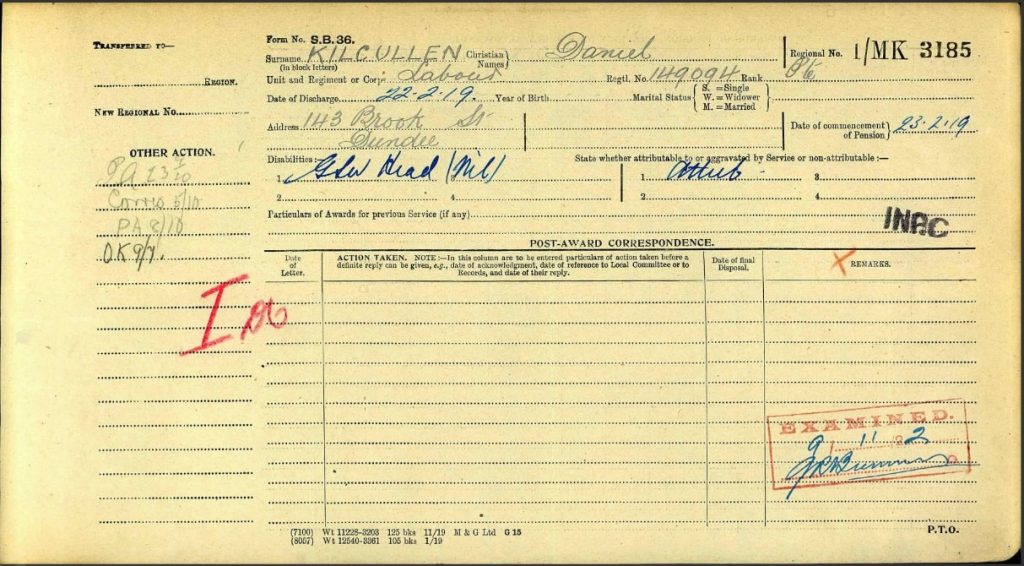 TRANSFERRED TO—
REGION.
NEW REGIONAL NO.
OTHER ACTION.
PA 8/10
OK 9/7.
Form No. S.B. 36.
Surname KILCULLEN Christian Names} Daniel Regional No. 1/MK 3185
(in block letters)
Unit and Regiment or Corps Labour Regtl. No. 149094 Rank Pte
Date of Discharge 22·2·19. Year of Birth Marital Status { S. =Single
W. =Widower
M. =Married }
Address 143 Brook St
Dundee
Date of commencement of Pension} 23·2·19
Disabilities:— State whether attributable to or aggravated by Service or non-attributable:—
1. GSW Head (Nil) 1. Attrib 3.
2. 4. 2. 4.
Particulars of Awards for previous Service (if any)
POST-AWARD CORRESPONDENCE.
Date of Letter.
ACTION TAKEN. NOTE:—In this column are to be entered particulars of action taken before a
definite reply can be given, e.g., date of acknowledgment, date of reference to Local Committee or to
Records, and date of their reply.
Date of final Disposal.
X REMARKS.
I
EXAMINED.
9 11 2
(7100) Wt 11228-3203 125 bks 11/19 M & G Ltd G 15
(8057) Wt 12540-3361 105 bks 1/19
P.T.O.